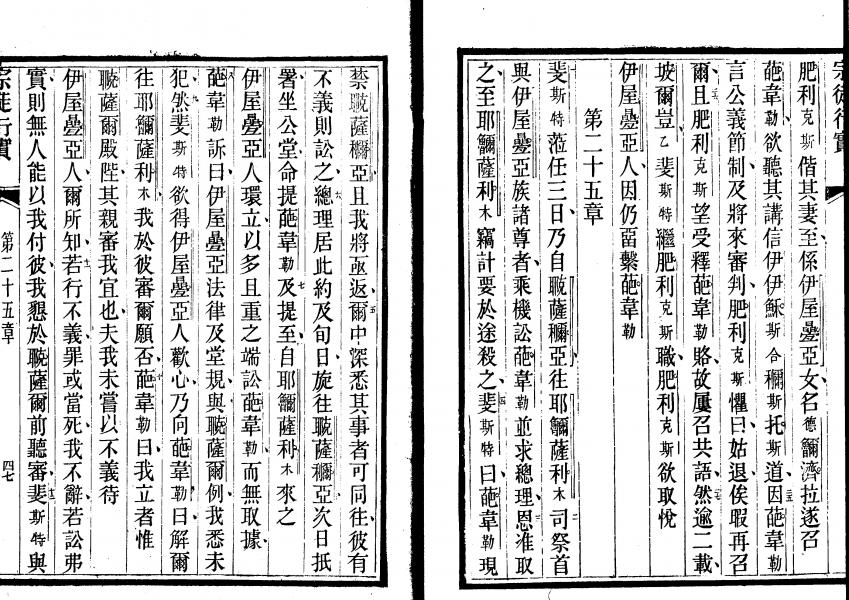 宗徒行實
肥利克斯偕其妻至係伊屋疊亞女名德濟拉遂召
葩韋勒欲聽其講信伊伊穌斯合穪斯托斯道因葩韋勒
言公義節制及將來審判肥利克斯懼曰姑退俟暇再召
爾且肥利克斯望受釋葩韋勒賂故屢召共語然逾二載
坡爾豈乙斐斯特繼肥利克斯職肥利克斯欲取悅
伊屋疊亞人因仍畱繫葩韋勒
第二十五章
斐斯特蒞任三日乃自薩穪亞往耶薩利木司祭首
與伊屋疊亞族諸尊者乘機訟葩韋勒並求總理恩准取
之至耶薩利木竊計要於途殺之斐斯特曰葩韋勒現
禁薩穪亞且我將亟返爾中深悉其事者可同往彼有
不義則訟之總理居此約及旬日旋往薩穪亞次日抵
署坐公堂命提葩韋勒及提至自耶薩利木來之
伊屋疊亞人環立以多且重之端訟葩韋勒而無取據
葩韋勒訴曰伊屋疊亞法律及堂規與薩爾例我悉未
犯然斐斯特欲得伊屋疊亞人歡心乃向葩韋勒曰解爾
往耶薩利木我於彼審爾願否葩韋勒曰我立者惟
薩爾殿陛其親審我宜也夫我未嘗以不義待
伊屋疊亞人爾所知若行不義罪或當死我不辭若訟弗
實則無人能以我付彼我懇於薩爾前聽審斐斯特與
宗徒行實
第二十五章
四七